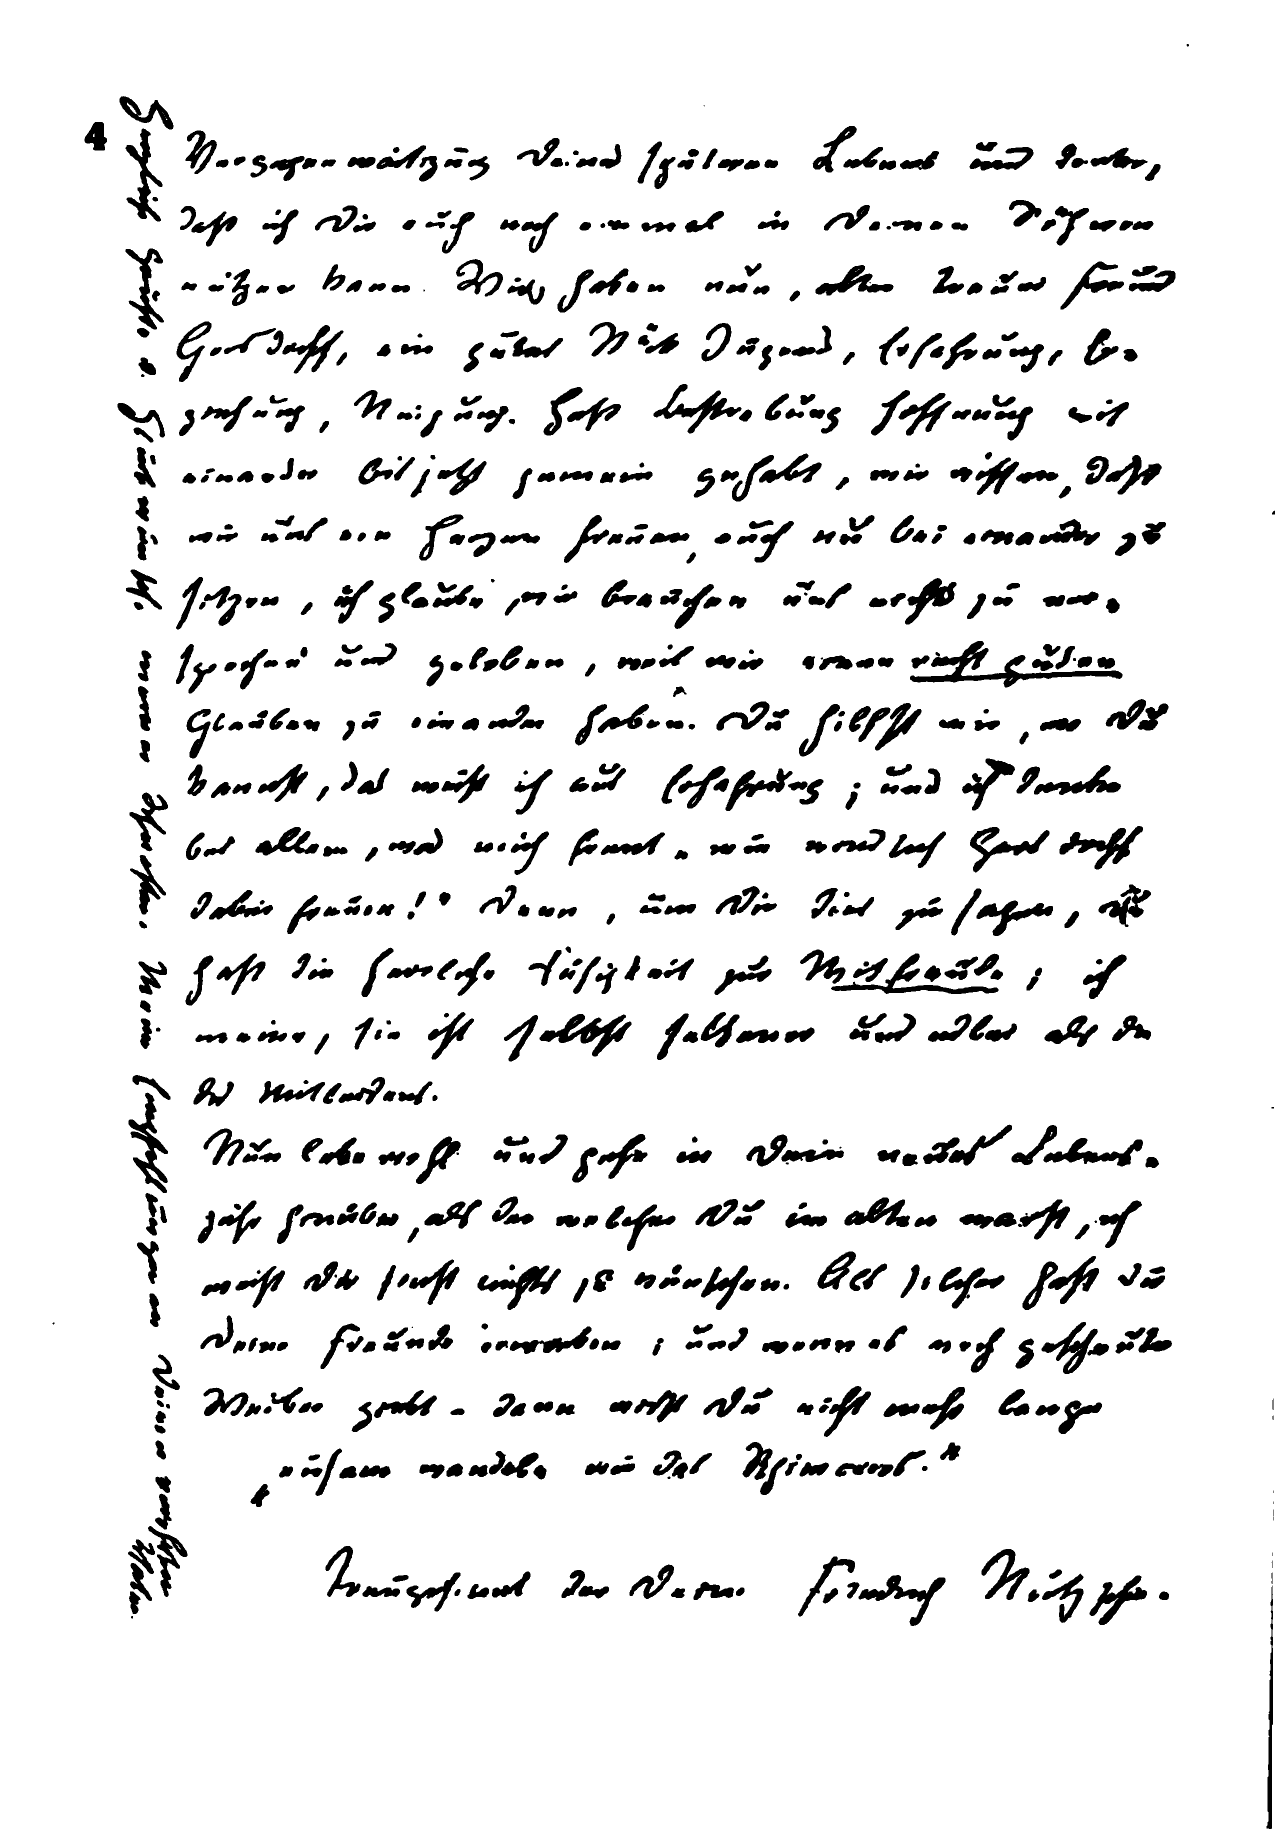 4
Vergegenwärtigung Deines späteren Lebens und denke,
daß ich Dir auch noch einmal in Deinen Söhnen
nützen kann. Wir haben nun, alter treuer Freund
Gersdorff, ein gutes Stück Jugend, Erfahrung, Er-
ziehung, Neigung, Haß Bestrebung Hoffnung mit
einander bis jetzt gemein gehabt, wir wissen, daß
wir uns von Herzen freuen, auch nur bei einander zu
sitzen, ich glaube, wir brauchen uns nichts zu ver-
sprechen und geloben, weil wir einen recht guten
Glauben zu einander haben. Du hilfst mir, wo Du
kannst, das weiß ich aus Erfahrung; und ich denke
bei allem, was mich freut „wie wird sich Gersdorff
dabei freuen!“ Denn, um Dir dies zu sagen, Du
hast die herrliche Fähigkeit zur Mitfreude; ich
meine, sie ist selbst seltener und edler als die
des Mitleidens.
Nun lebe wohl und gehe in Dein neues Lebens-
jahr hinüber, als der welcher Du im alten warst, ich
weiß Dir sonst nichts zu wünschen. Als solcher hast Du
Deine Freunde erworben; und wenn es noch gescheute
Weiber giebt – dann wirst Du nicht mehr lange
„einsam wandeln wie das Rhinoceros.“
Treugesinnt der Deine Friedrich Nietzsche.
Herzliche Grüße u. Glückwünsche meiner Schwester. Meine Empfehlungen an Deinen verehrten
Vater.